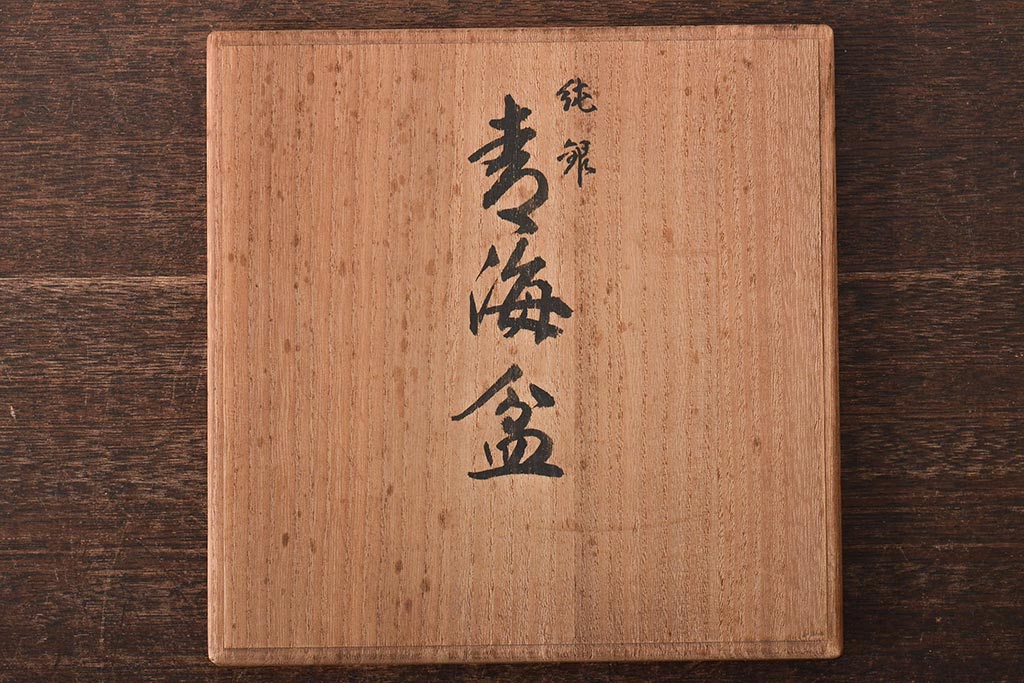 純銀
青海盆